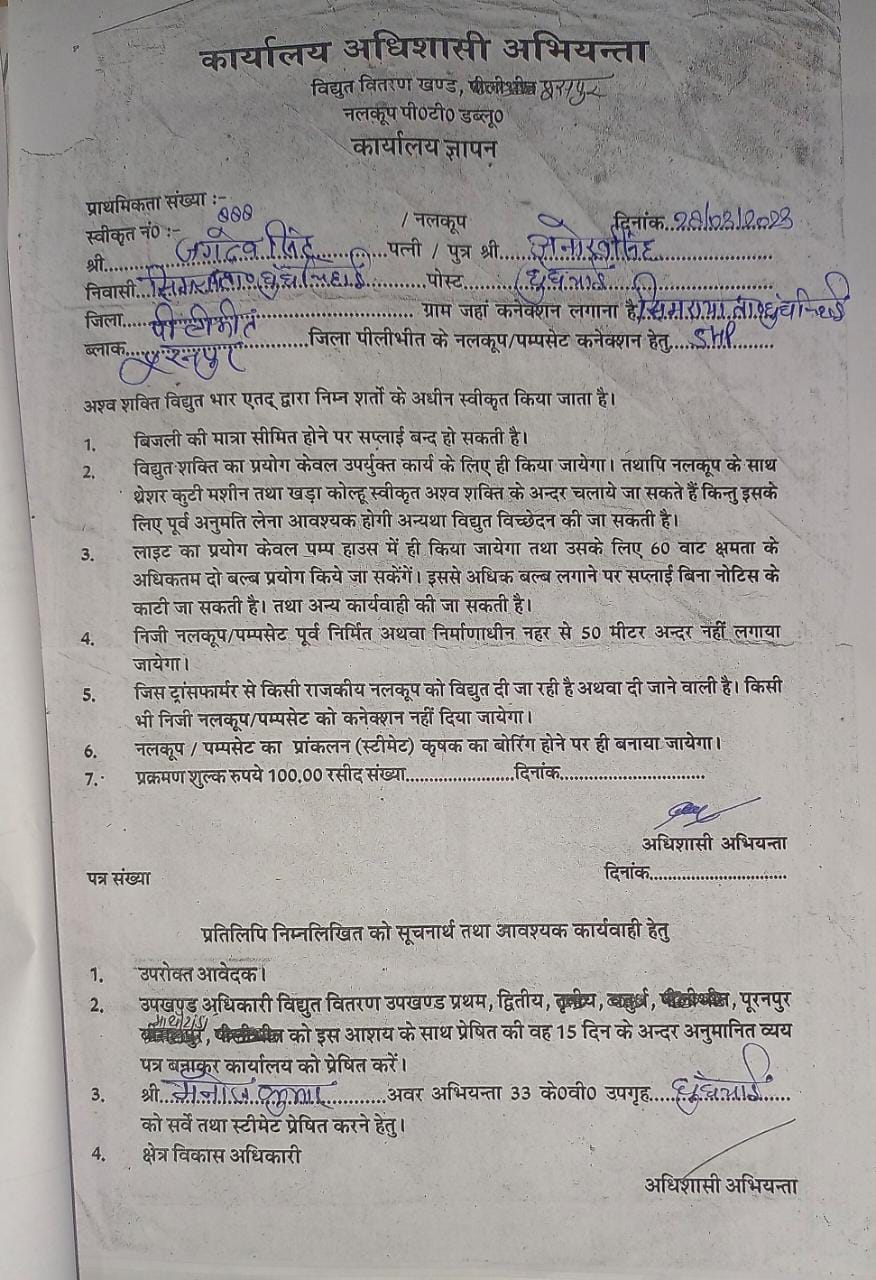 कार्यालय अधिशासी अभियन्ता
विद्युत वितरण खण्ड, पीलीभीत पूरनपुर
नलकूप पी0टी0 डब्लू0
कार्यालय ज्ञापन
प्राथमिकता संख्या :-
स्वीकृत नं0 :- / नलकूप दिनांक..28/03/2023
श्री....जगदेव सिंह.......पत्नी / पुत्र श्री.....
निवासी.....पोस्ट.....
जिला....पीलीभीत..... ग्राम जहां कनेक्शन लगाना है
ब्लाक....पूरनपुर.....जिला पीलीभीत के नलकूप/पम्पसेट कनेक्शन हेतु....5HP.......
अश्व शक्ति विद्युत भार एतद् द्वारा निम्न शर्तो के अधीन स्वीकृत किया जाता है।
1. बिजली की मात्रा सीमित होने पर सप्लाई बन्द हो सकती है।
2. विद्युत शक्ति का प्रयोग केवल उपर्युक्त कार्य के लिए ही किया जायेगा। तथापि नलकूप के साथ
थ्रेशर कुटी मशीन तथा खड़ा कोल्हू स्वीकृत अश्व शक्ति के अन्दर चलाये जा सकते हैं किन्तु इसके
लिए पूर्व अनुमति लेना आवश्यक होगी अन्यथा विद्युत विच्छेदन की जा सकती है।
3. लाइट का प्रयोग केवल पम्प हाउस में ही किया जायेगा तथा उसके लिए 60 वाट क्षमता के
अधिकतम दो बल्ब प्रयोग किये जा सकेंगें। इससे अधिक बल्ब लगाने पर सप्लाई बिना नोटिस के
काटी जा सकती है। तथा अन्य कार्यवाही की जा सकती है।
4. निजी नलकूप/पम्पसेट पूर्व निर्मित अथवा निर्माणाधीन नहर से 50 मीटर अन्दर नहीं लगाया
जायेगा।
5. जिस ट्रांसफार्मर से किसी राजकीय नलकूप को विद्युत दी जा रही है अथवा दी जाने वाली है। किसी
भी निजी नलकूप/पम्पसेट को कनेक्शन नहीं दिया जायेगा।
6. नलकूप / पम्पसेट का प्रांकलन (स्टीमेट) कृषक का बोरिंग होने पर ही बनाया जायेगा।
7. प्रक्रमण शुल्क रुपये 100.00 रसीद संख्या......................दिनांक.............................
अधिशासी अभियन्ता
पत्र संख्या दिनांक............................
प्रतिलिपि निम्नलिखित को सूचनार्थ तथा आवश्यक कार्यवाही हेतु
1. उपरोक्त आवेदक।
2. उपखण्ड अधिकारी विद्युत वितरण उपखण्ड प्रथम, द्वितीय, तृतीय, चतुर्थ, पीलीभीत, पूरनपुर
पीलीभीत को इस आशय के साथ प्रेषित की वह 15 दिन के अन्दर अनुमानित व्यय
पत्र बनाकर कार्यालय को प्रेषित करें।
3. श्री..मनोज कुमार.........अवर अभियन्ता 33 के0वी0 उपगृह.....
को सर्वे तथा स्टीमेट प्रेषित करने हेतु।
4. क्षेत्र विकास अधिकारी
अधिशासी अभियन्ता